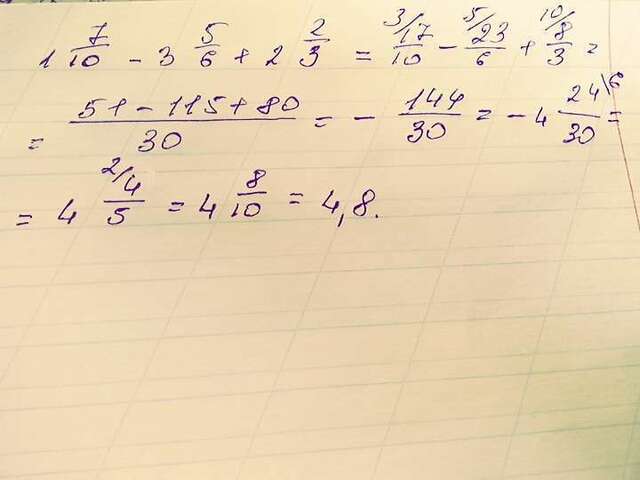 1 7/10 - 3 5/6 + 2 2/3 = 3/ 17/10 - 5/ 23/6 + 10/ 8/3 =
= 51 - 115 + 80 / 30 = - 144/30 = - 4 24\6 / 30 =
= 4 2/ 4/5 = 4 8/10 = 4,8.